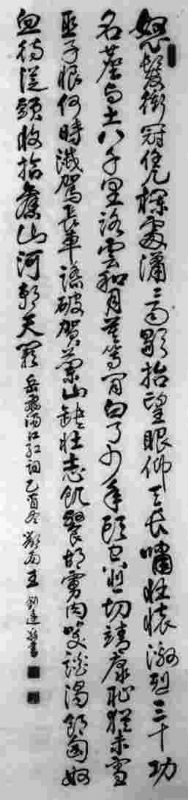 怒髮衝冠凭欄處瀟瀟雨歇抬望眼仰天長嘯壯懷激烈三十功
名塵与土八千里路雲和月莫等閒白了少年頭空悲切靖康恥猶未雪
臣子恨何時滅駕長車踏破賀蘭山缺壯志飢餐胡虜肉笑談渴飲匈奴
血待從頭收拾舊山河朝天闕 岳飛滿江紅詞 乙酉冬 王書